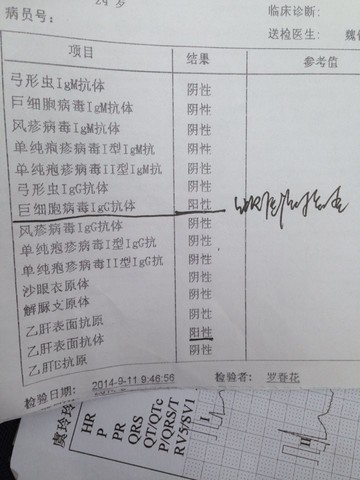 病员号:
临床诊断:
送检医生:
项目 结果 参考值
弓形虫IgM抗体 阴性
巨细胞病毒IgM抗体 阴性
风疹病毒IgM抗体 阴性
单纯疱疹病毒I型IgM抗 阴性
单纯疱疹病毒II型IgM抗 阴性
弓形虫IgG抗体 阴性
巨细胞病毒IgG抗体 阳性
风疹病毒IgG抗体 阴性
单纯疱疹病毒I型IgG抗 阴性
单纯疱疹病毒II型IgG抗 阴性
沙眼衣原体 阴性
解脲支原体 阴性
乙肝表面抗原 阴性
乙肝表面抗体 阳性
乙肝E抗原 阴性
检验日期: 2014-9-11 9:46:56 检验者: 罗春花
虞玲玲
HR
P
PR
QRS
QT/QTc
P/QRS/T
RV5/SV1
I
II